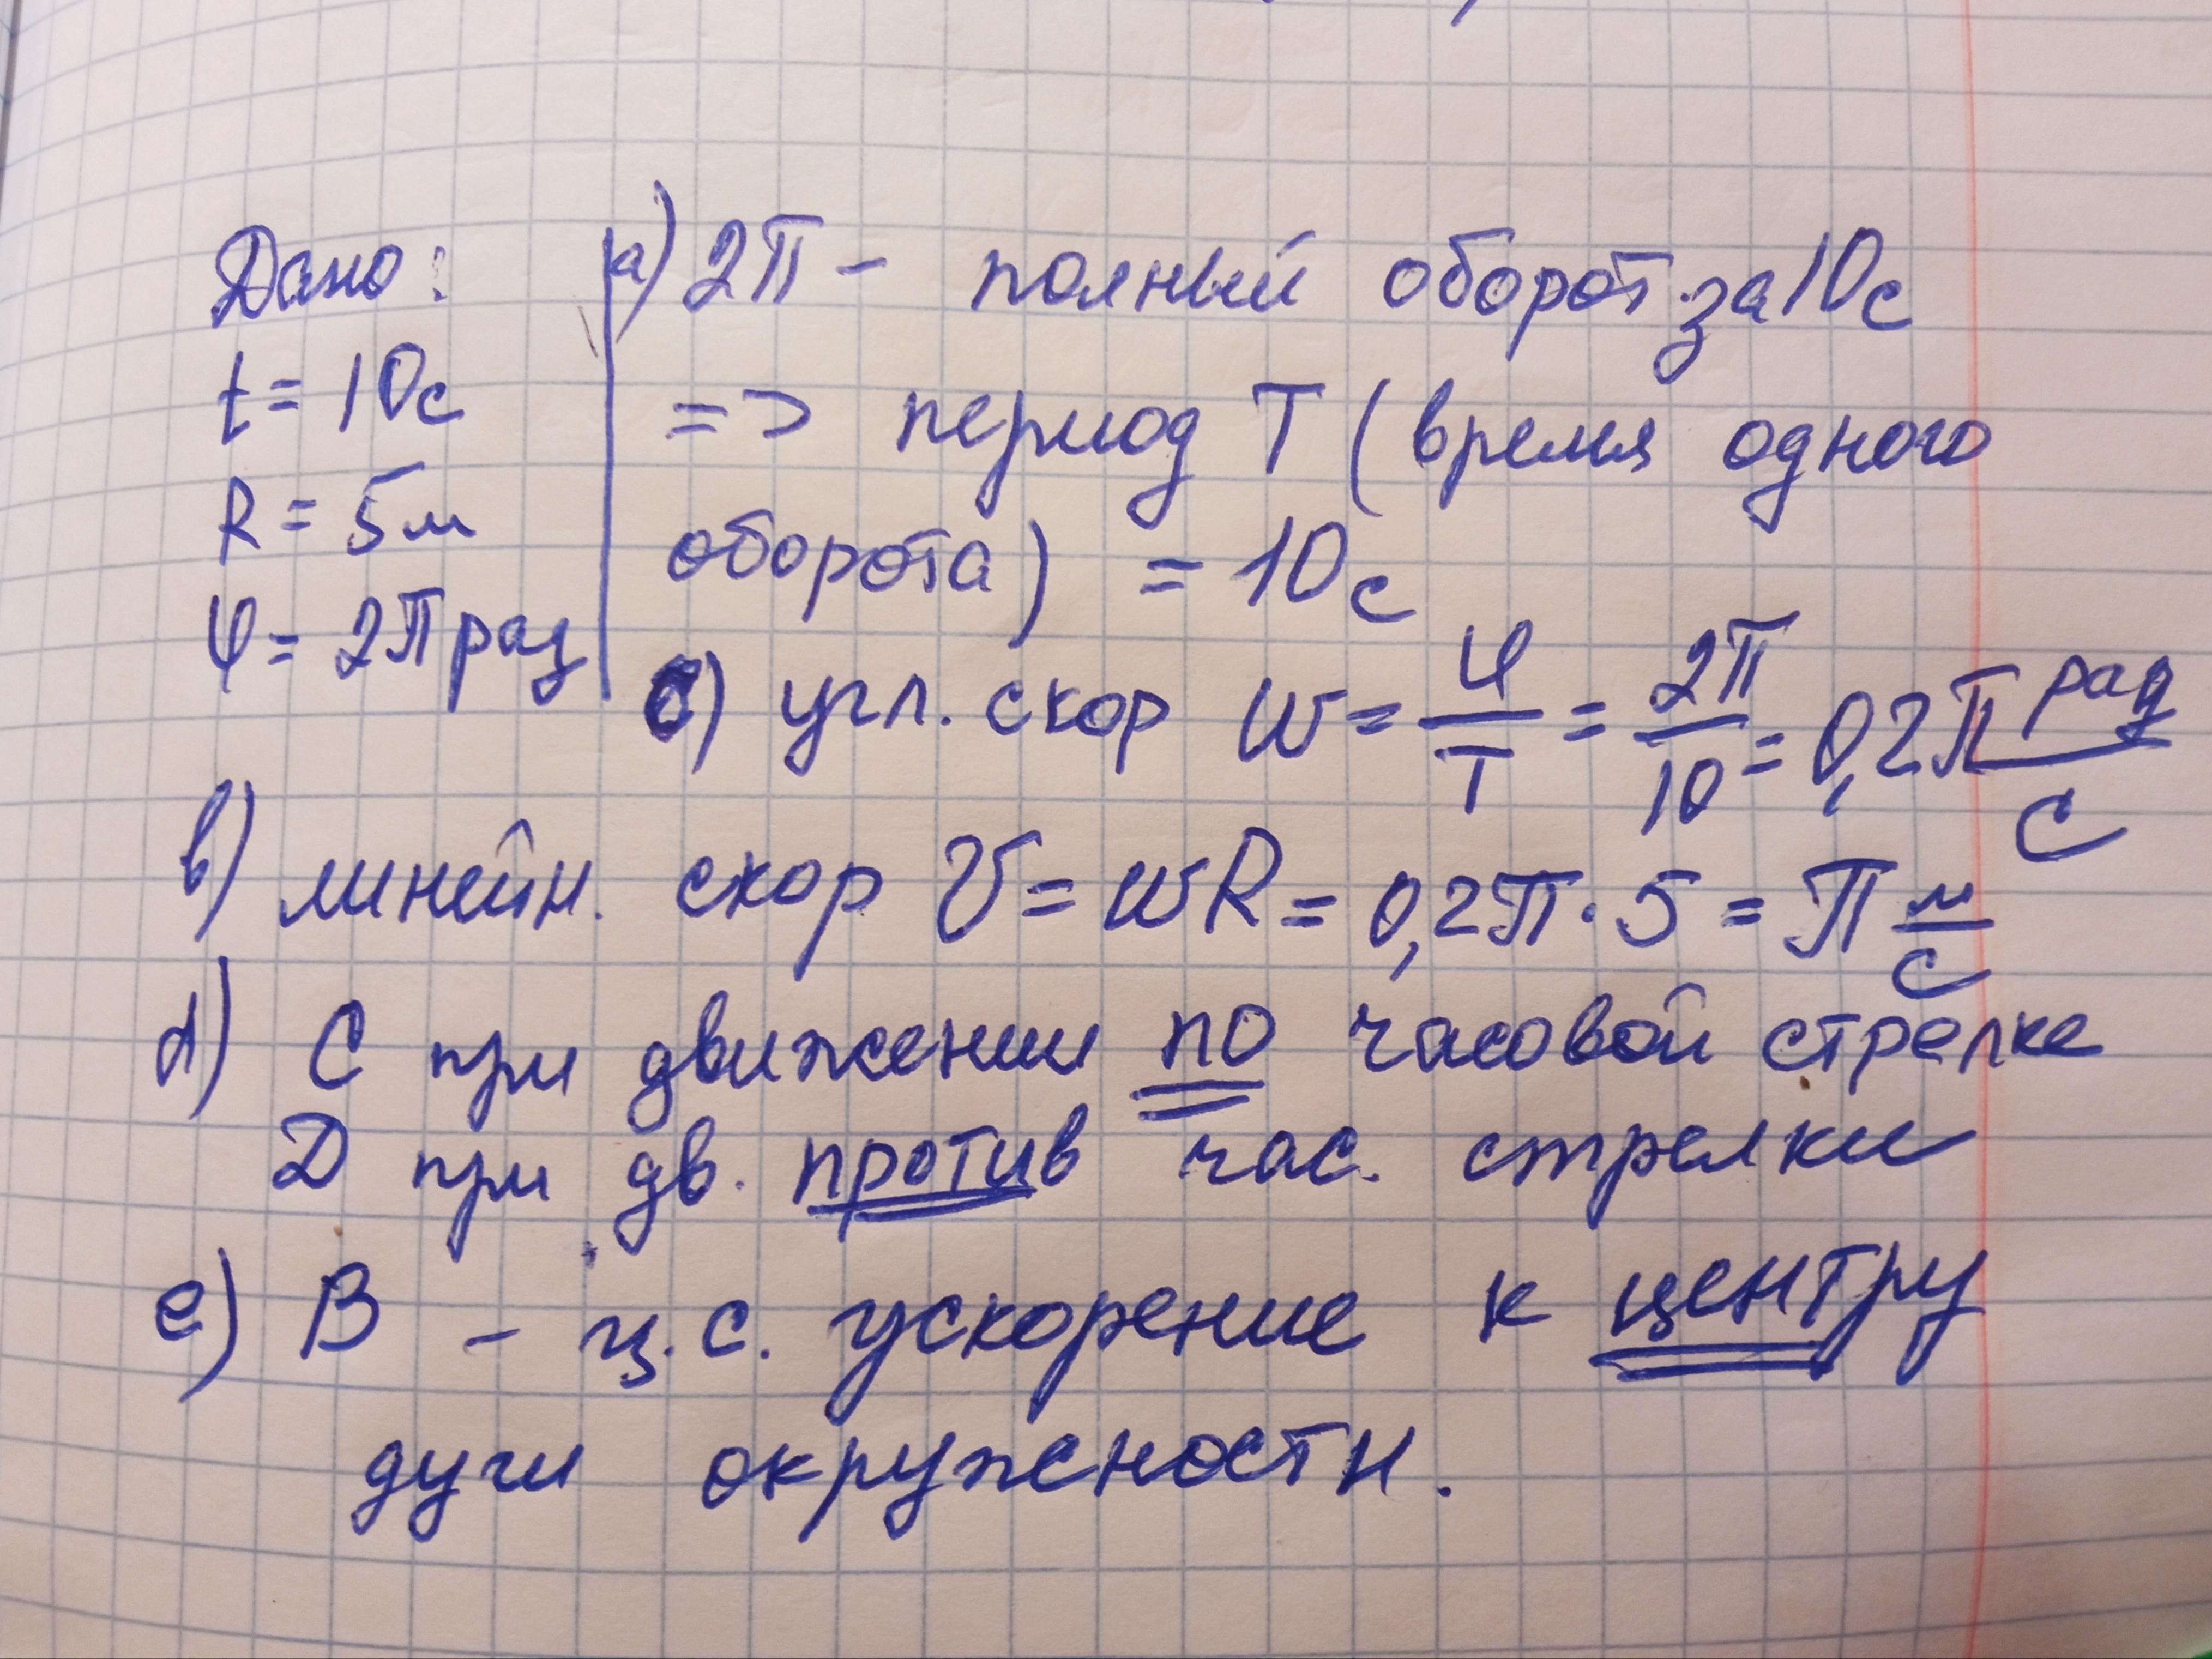 Дано:
t = 10с
R = 5м
φ = 2π рад
а) 2π - полный оборот за 10с
=> период T (время одного
оборота) = 10с
c) угл. скор w = φ/T = 2π/10 = 0,2π рад/с
b) линейн. скор v = wR = 0,2π · 5 = π м/с
d) C при движении по часовой стрелке
Д при дв. против час. стрелки
e) B - ц.с. ускорение к центру
дуги окружности.